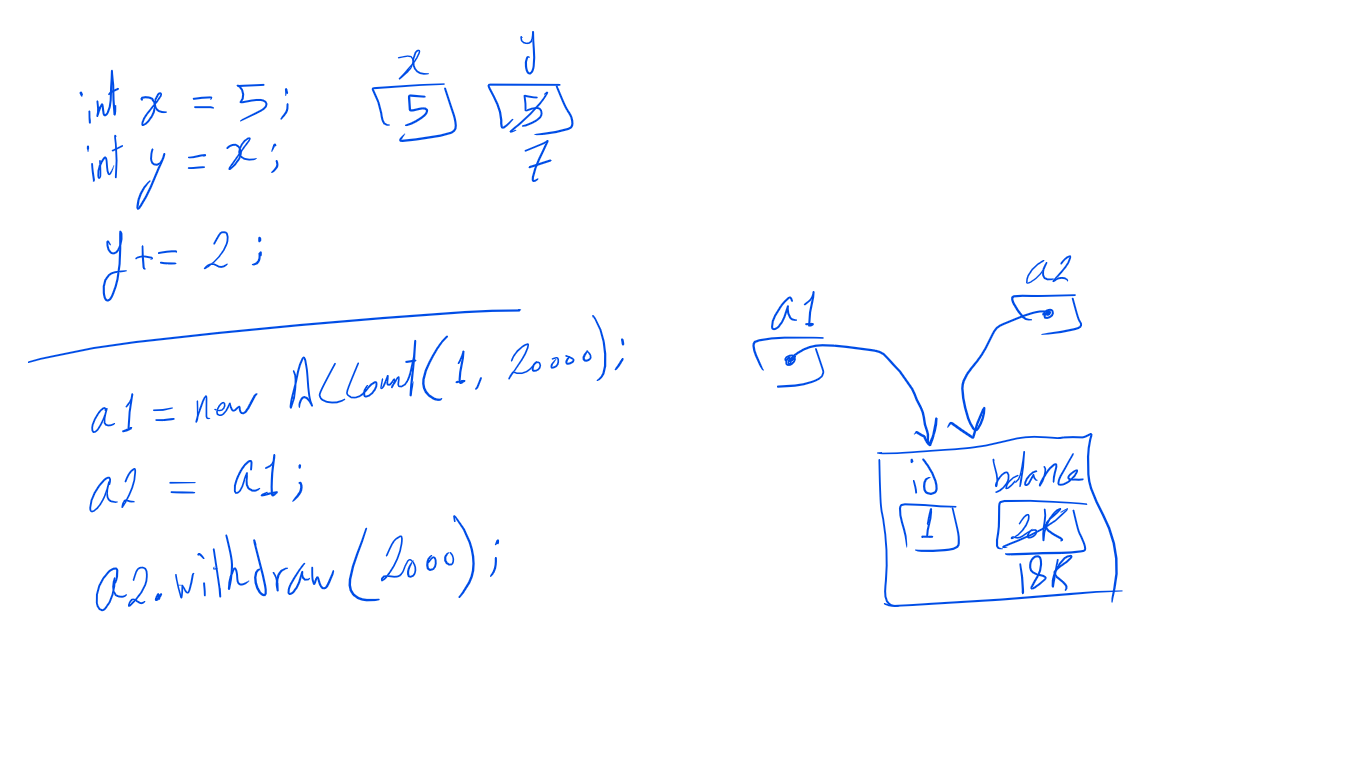 int x = 5;
int y = x;
y += 2;
x y
5 5
7
a1 = new Account(1, 20000);
a2 = a1;
a2.withdraw(2000);
a1
a2
id balance
1 20K
18K